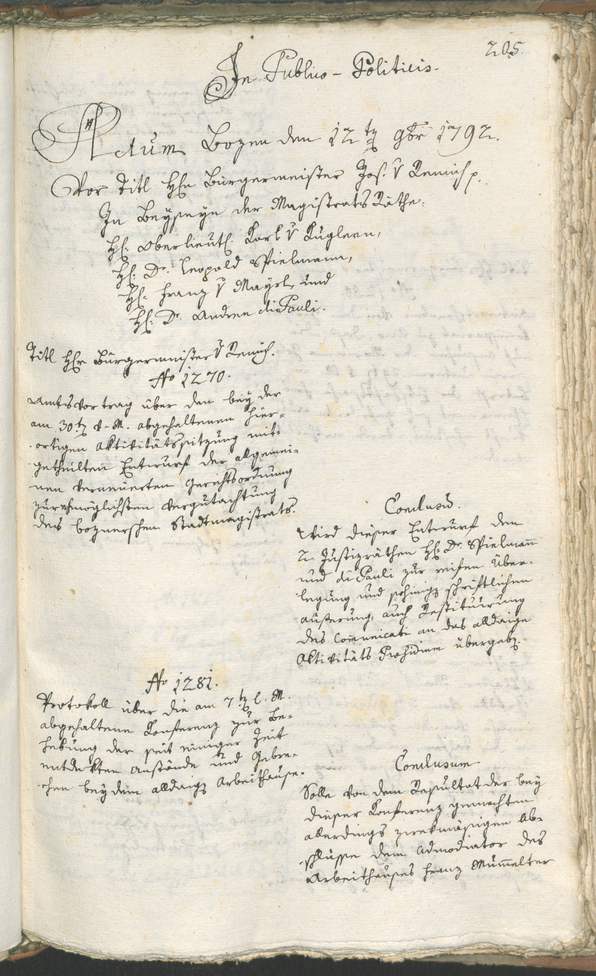 205.
In Publico-Politicis.
Actum Bozen den 12ten 9br 1792.
Vor Titl Hrn Bürgermeister Jos. v Remich p.
In Beyseyn der Magistrats Räthe.
Hl. Oberlieutl. Karl v
Hl. Dr. Leopold Spielmann,
Hl. Franz v Mayrl, und
Hl. Dr. Andree di Pauli.
Titl Hr Bürgermeister v Remich.
No 1270.
Amtsvortrag über den bey der
am 30ten v. M. abgehaltenen hier-
ortigen Aktivitätssitzung mit-
getheilten Entwurf der allgemei-
nen verneuerten Gerichtsordnung
zur möglichsten Begutachtung
des boznerschen Stadtmagistrats.
Conclusum.
Wird dieser Entwurf den
2 Justizräthen Hl. Dr. Spielmann
und di Pauli zur reifen Über-
legung und schriftlichen
äußerung, auch Restituirung
des Communicats an das alldaige
Aktivitäts Präsidium übergeben.
No 1281.
Protokoll über die am 7ten l. M.
abgehaltene Konferenz zur Be-
hebung der seit einiger Zeit
entdekten Anstände und Gebre-
chen bey dem alldaigen Arbeithause.
Conclusum
Solle von dem Resultat der bey
dieser Konferenz gemachten
allerdings zwekmäßigen Ab-
schlüsse dem Admodiator des
Arbeithauses Franz Mumelter